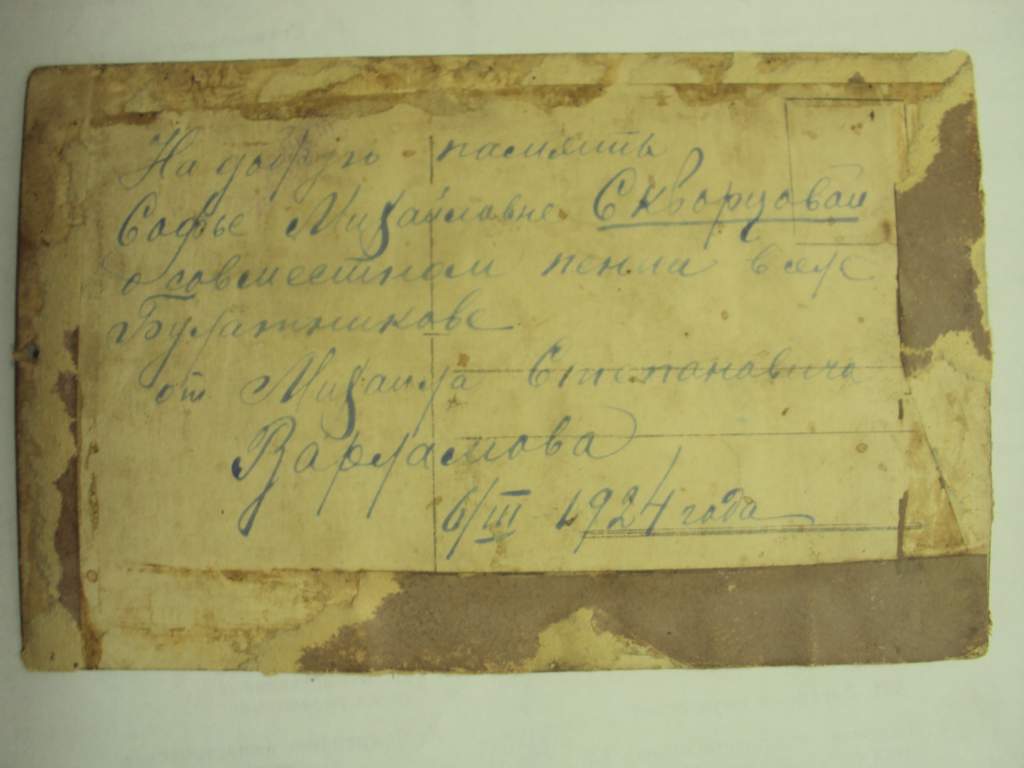 На добрую память
Софье Михайловне Скворцовой
о совместном пении в селе
Булатникове
от Михаила Степановича
Варламова
6/III 1924 года